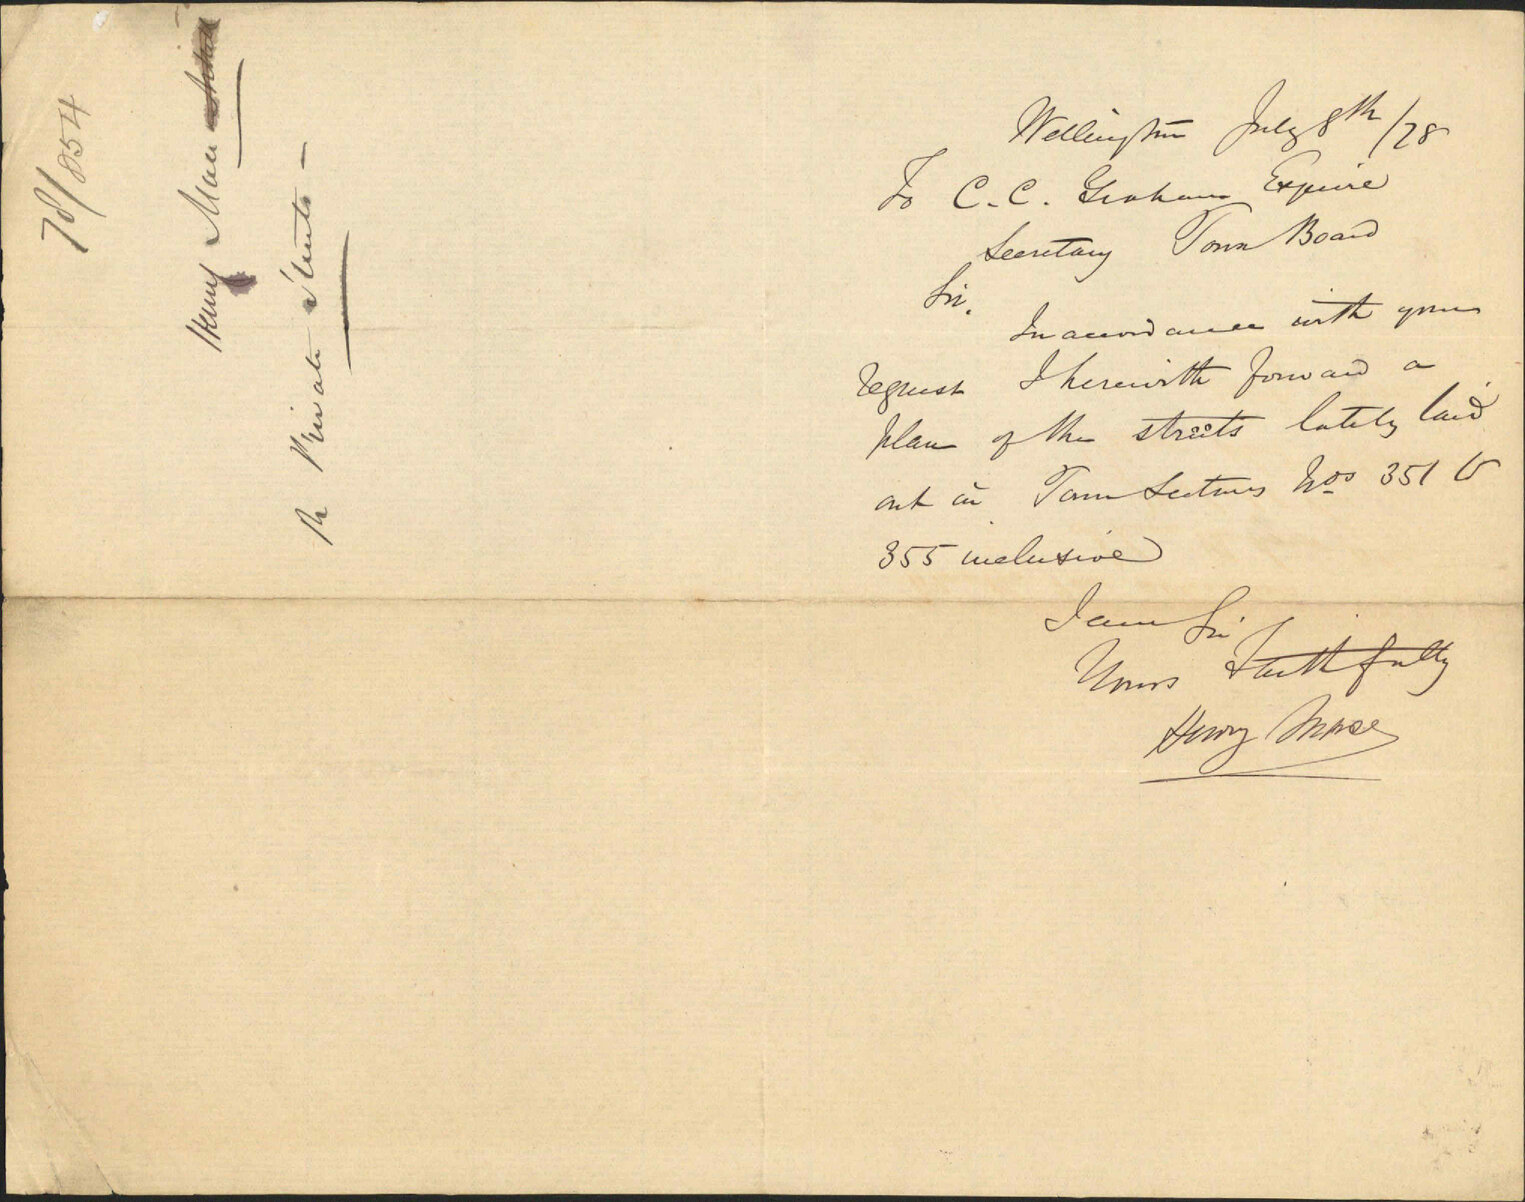 Wellington July 8th /78
To C. C. Graham Esquire
Secretary Town Board
Sir.
In accordance with your
request I herewith forward a
plan of the streets lately laid
out in Town Sections Nos 351 to
355 inclusive
I am Sir
Yours Faithfully
Henry
78/854
Henry
Re Private Streets -